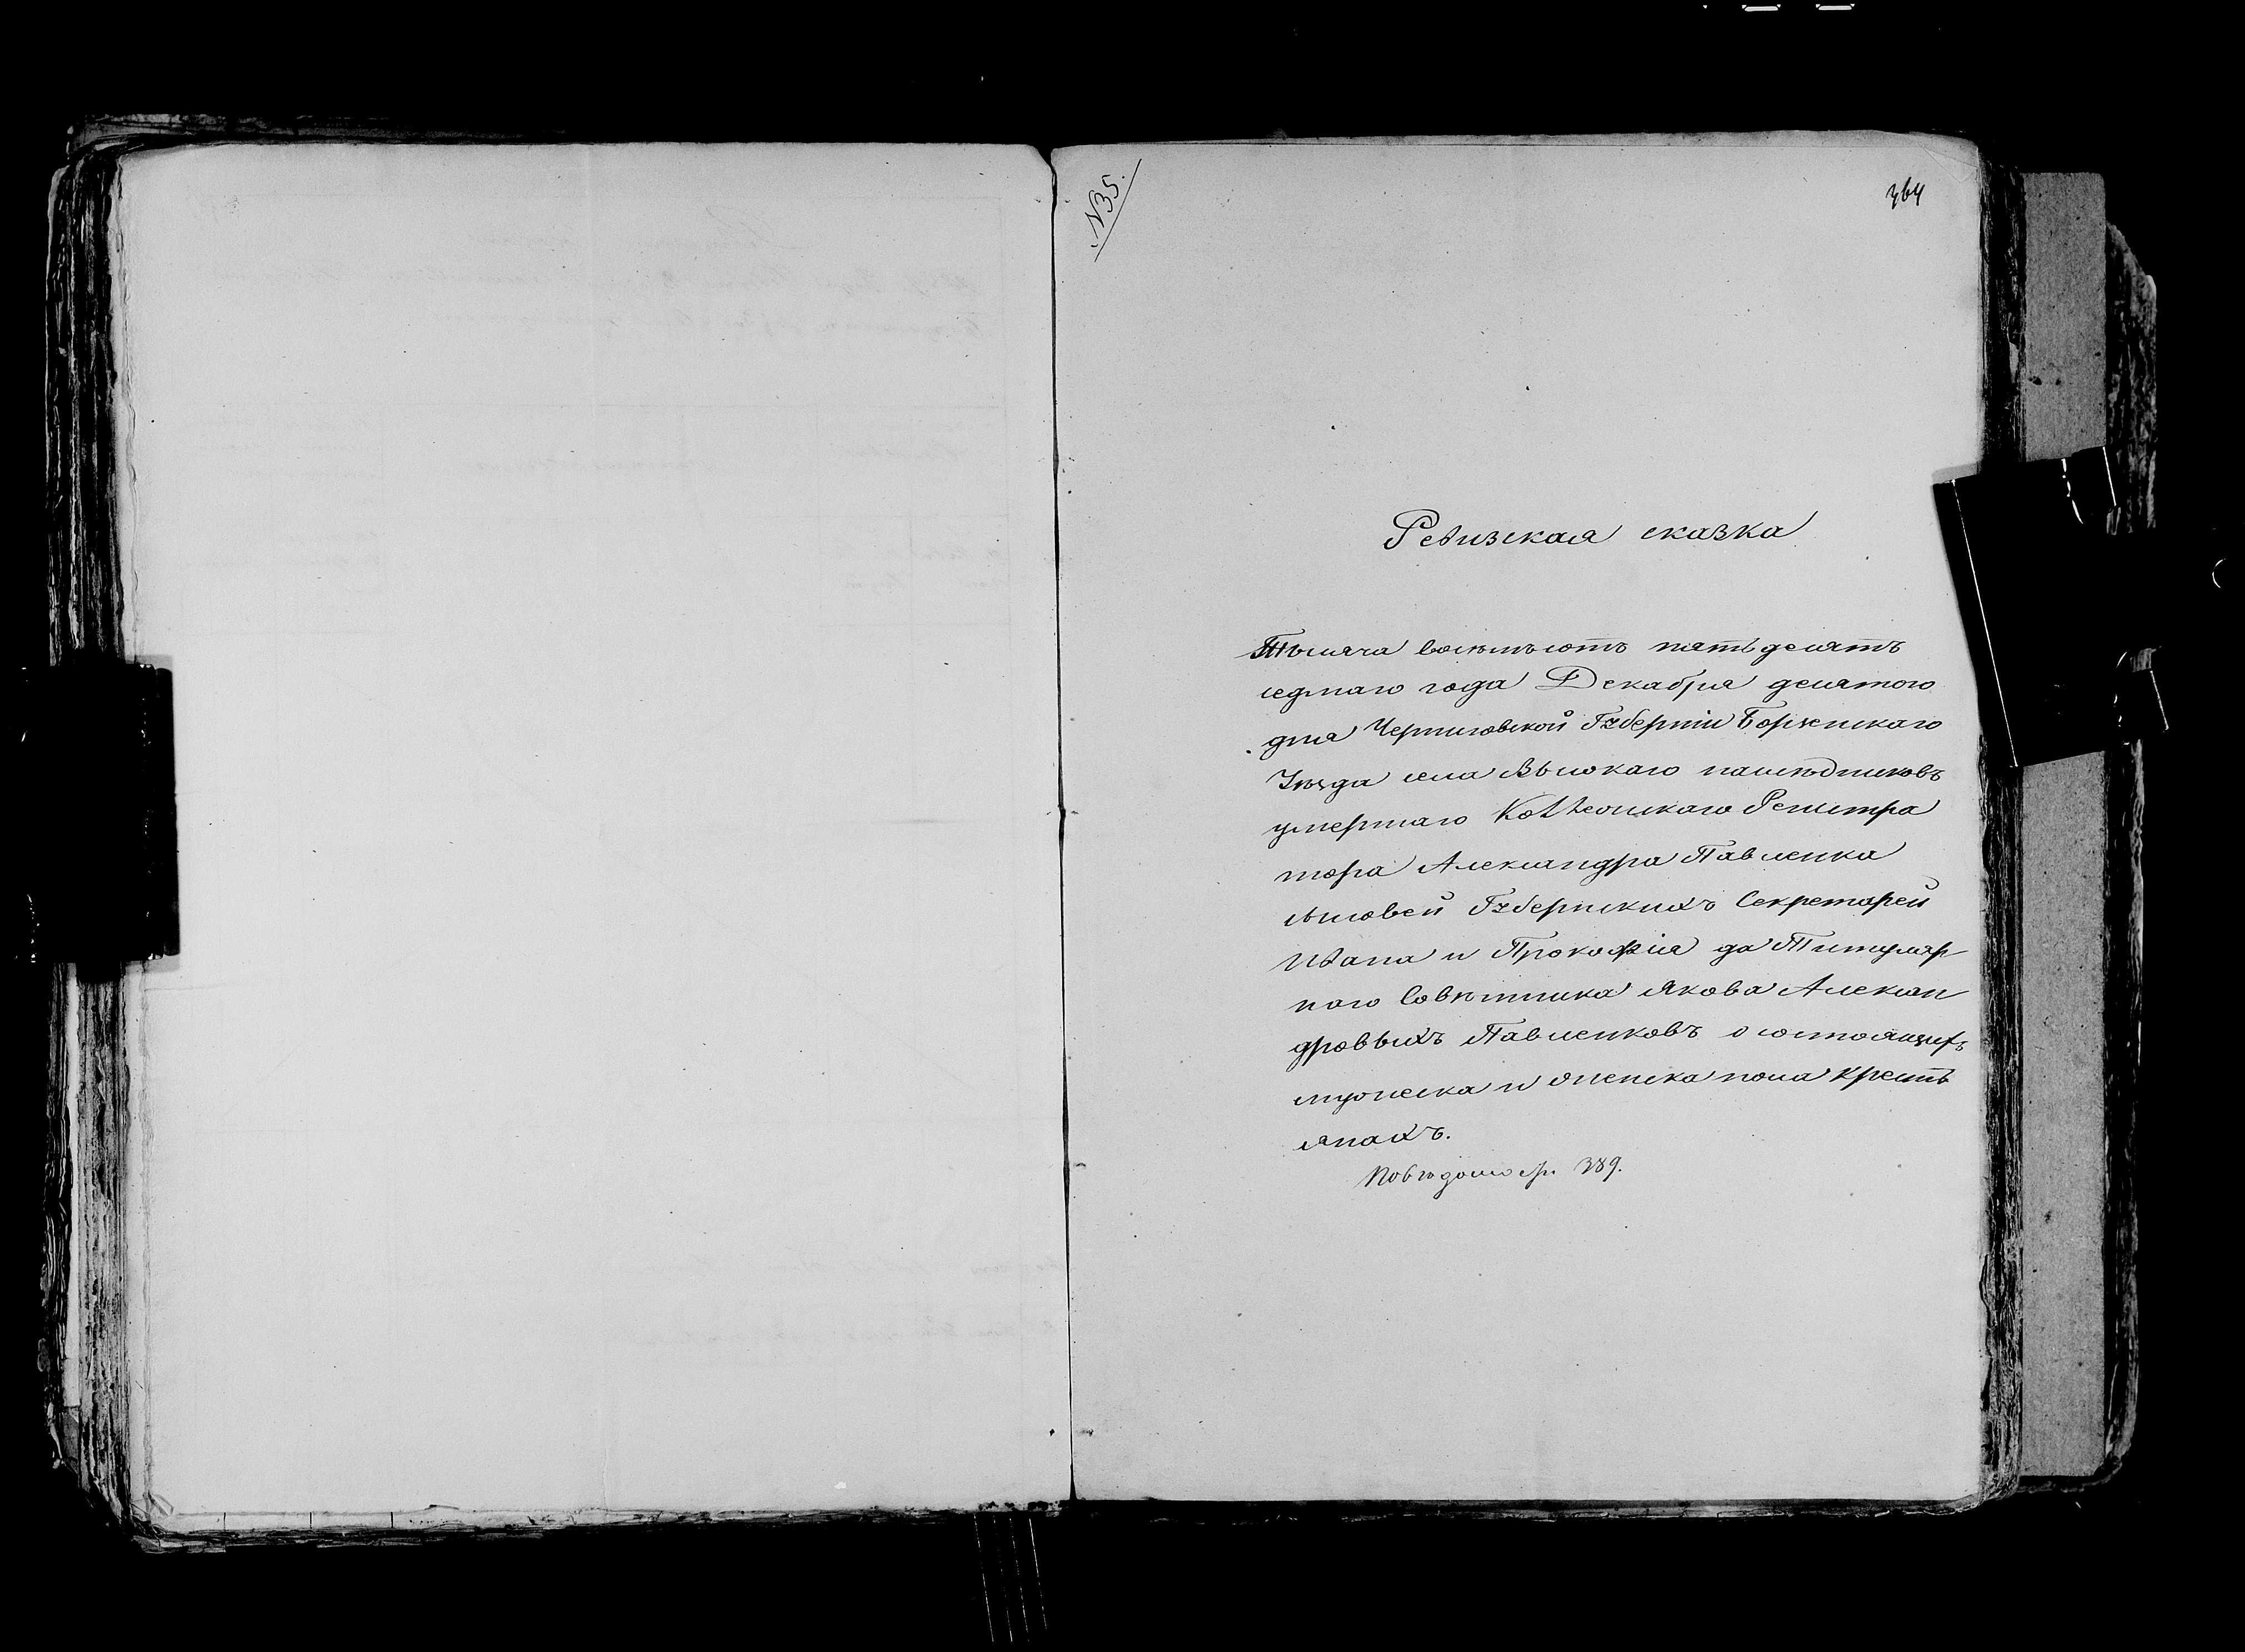 №35.
364
Ревизская сказка
Тысяча восемьсотъ пятьдесятъ
седмаго года Декабря десятого
дня Черниговской Губерніи Борзенскаго
Уѣзда села Высокаго наслѣдниковъ
умершаго Коллежскаго Регистра
тора Александра Павленка
сыновей Губернскихъ Секретарей
Ивана и Прокофія да Титуляр
наго Совѣтника Якова Алексан
дровыхъ Павленковъ о состоящихъ
мужеска и женска пола кресть
янахъ.
389.